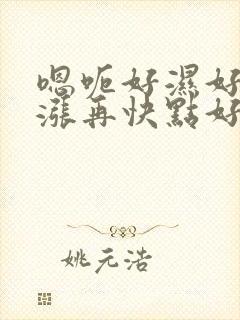 嗯呃好濕好
漲再快點好
姚元浩